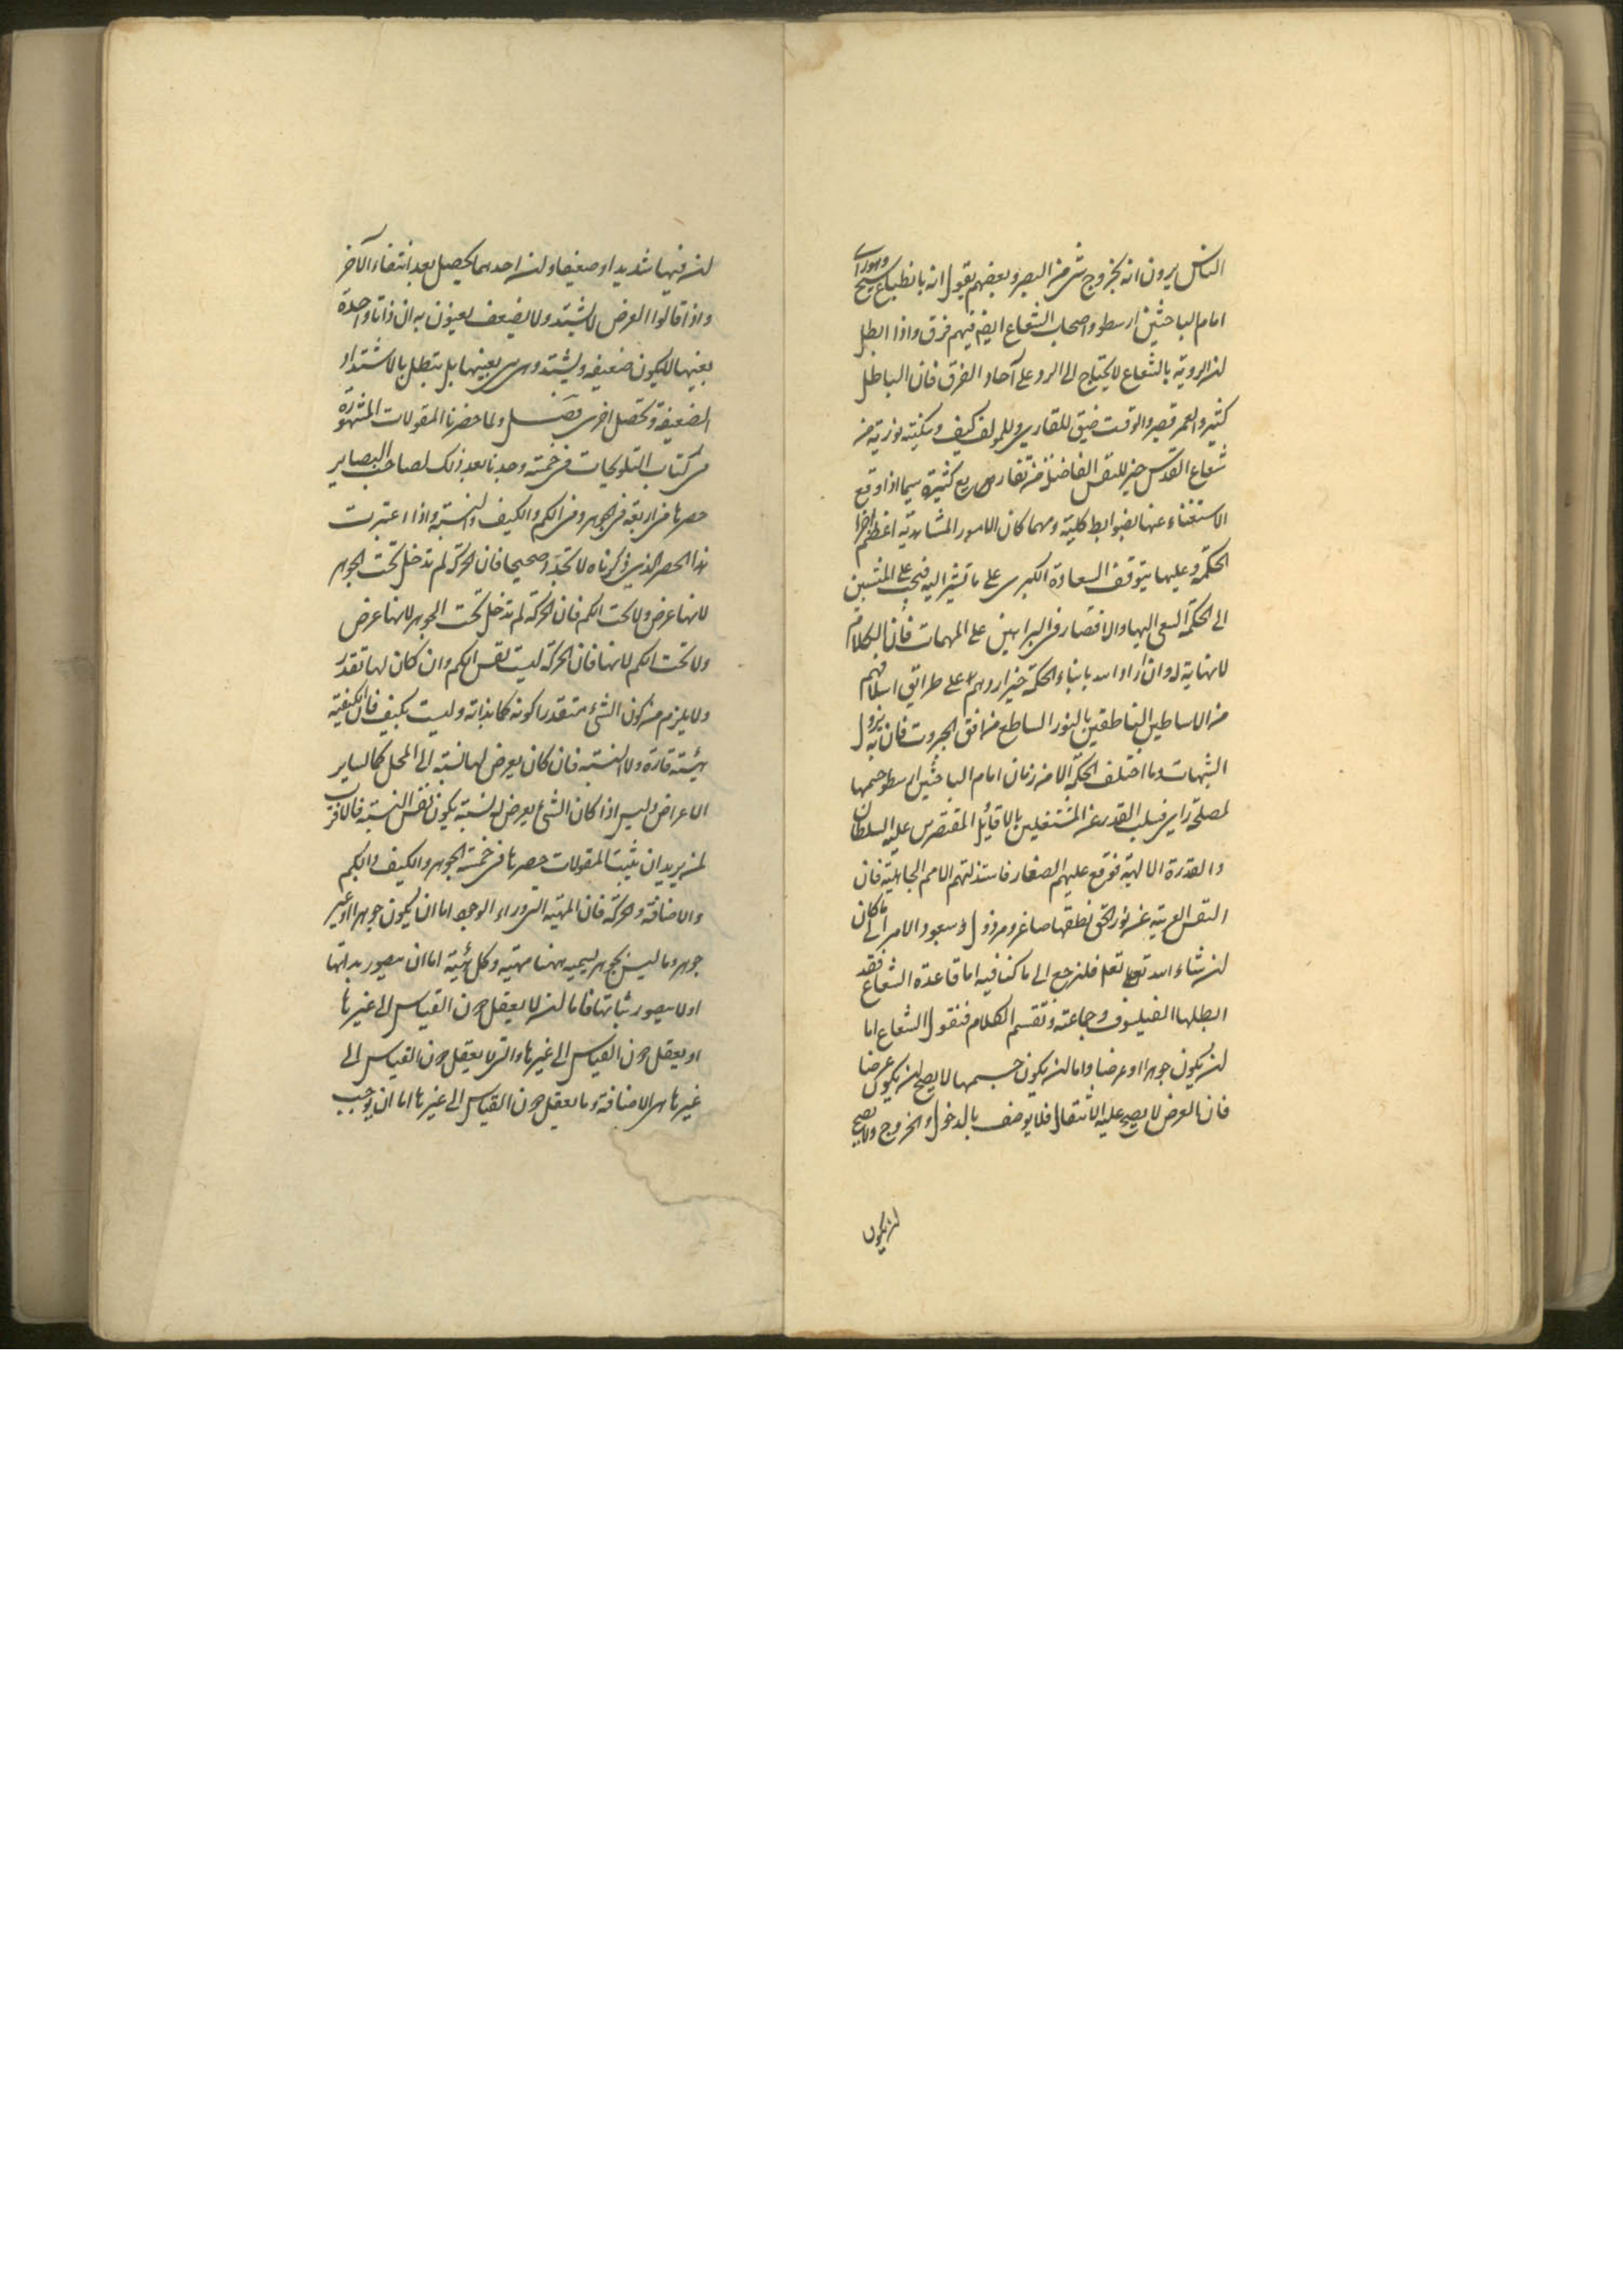 الناس يرون انه بخروج شئ من البصر وبعضهم يقول انه بانطباع شبح وهو راى
امام الباحثين ارسطو واصحاب الشعاع ايضا فيهم فرق واذا ابطل
لنه الروية بالشعاع لا يحتاج الى الرد على آحاد الفرق فان الباطل
كثير والعمر قصير والوقت ضيق للقارى وللمولف كيف وسكينة نورية من
شعاع القدس خير للنفس الفاضلة من تفاريع كثيرة سيما اذا وقع
الاستغناء عنها بضوابط كلية ومهما كان الامور المشاهدية اعظم اجزا
الحكمة وعليها يتوقف السعادة الكبرى على ما تشير اليه فيجب على المنتسبين
الى الحكمة السعى اليها والاقتصار فى البراهين على المهمات فان الكلام
لا نهاية له وان اراد الله بابناء الحكمة خيرا ردهم على طرايق اسلافهم
من الاساطين الناطقين بالنور الساطع من افق الجبروت فان به يزول
الشبهات وما اختلف الحكمة الا من زمان امام الباحثين ارسطو حيها
لمصلحة راى فسلب القدر عن المشتغلين بالاقاويل المقتصرين عليه السلطان
والقدرة الالهية فوقع عليهم الصغار فاستذلتهم الامم الجاهلية فان
النفس العرية عن نور الحق نطقها صاغر ومرذول وسيعود الامر الى ما كان
لن شاء الله تعالى فلنرجع الى ما كنا فيه اما قاعدة الشعاع فقد
ابطلها الفيلسوف وجماعته ونقسم الكلام فنقول الشعاع اما
لن يكون جوهرا او عرضا واما لن يكون جسمها لا يصح لن يكون عرضا
فان العرض لا يصح عليه الانتقال فلا يوصف بالدخول والخروج ولا يصح
لن يكون
لن فيها شديدا وضعيفا ولن احدهما يحصل بعد انتفاء الآخر
واذا قالوا العرض لا يشتد ولا يضعف يعنون به ان ذاتا واحدة
بعينها لا يكون ضعيفه ويشتد وهى هى بعينها بل يبطل بالاشتداد
الضعيفة وتحصل اخرى فصل ولما حصرنا المقولات المشهورة
فى كتاب التلويحات فى خمسة وجدنا بعد ذلك لصاحب البصاير
حصرها فى اربعة فى الجوهر وفى الكم والكيف والنسبة واذا اعتبرت
هذا الحصر الذى ذكرناه لا تجده صحيحا فان الحركة لم تدخل تحت الجوهر
لانها عرض ولا تحت الكم فان الحركة لم تدخل تحت الجوهر لانها عرض
ولا تحت الكم لانها فان الحركة ليست نفس الكم وان كان لها تقدر
ولا يلزم من كون الشئ متقدرا كونه كما بذاته وليست بكيف فان الكيفية
هيئة قارة ولا النسبة فان كان يعرض لها نسبة الى المحل كما لساير
الاعراض وليس اذا كان الشئ يعرض له نسبة يكون نفس النسبة فالاقرب
لمن يريد ان يثبت المقولات حصرها فى خمسة الجوهر والكيف والكم
والاضافة والحركة فان المهية التى وراء الوجود اما ان يكون جوهرا او غير
جوهر وما ليس بجوهر نسميه ههنا مهية وكل هيئة اما ان يتصور بذاتها
او لا يتصور ثباتها فاما لن لا يعقل دون القياس الى غيرها
او يعقل دون القياس الى غيرها والتى لا يعقل دون القياس الى
غيرها هى الاضافة وما يعقل دون القياس الى غيرها اما ان يوجب